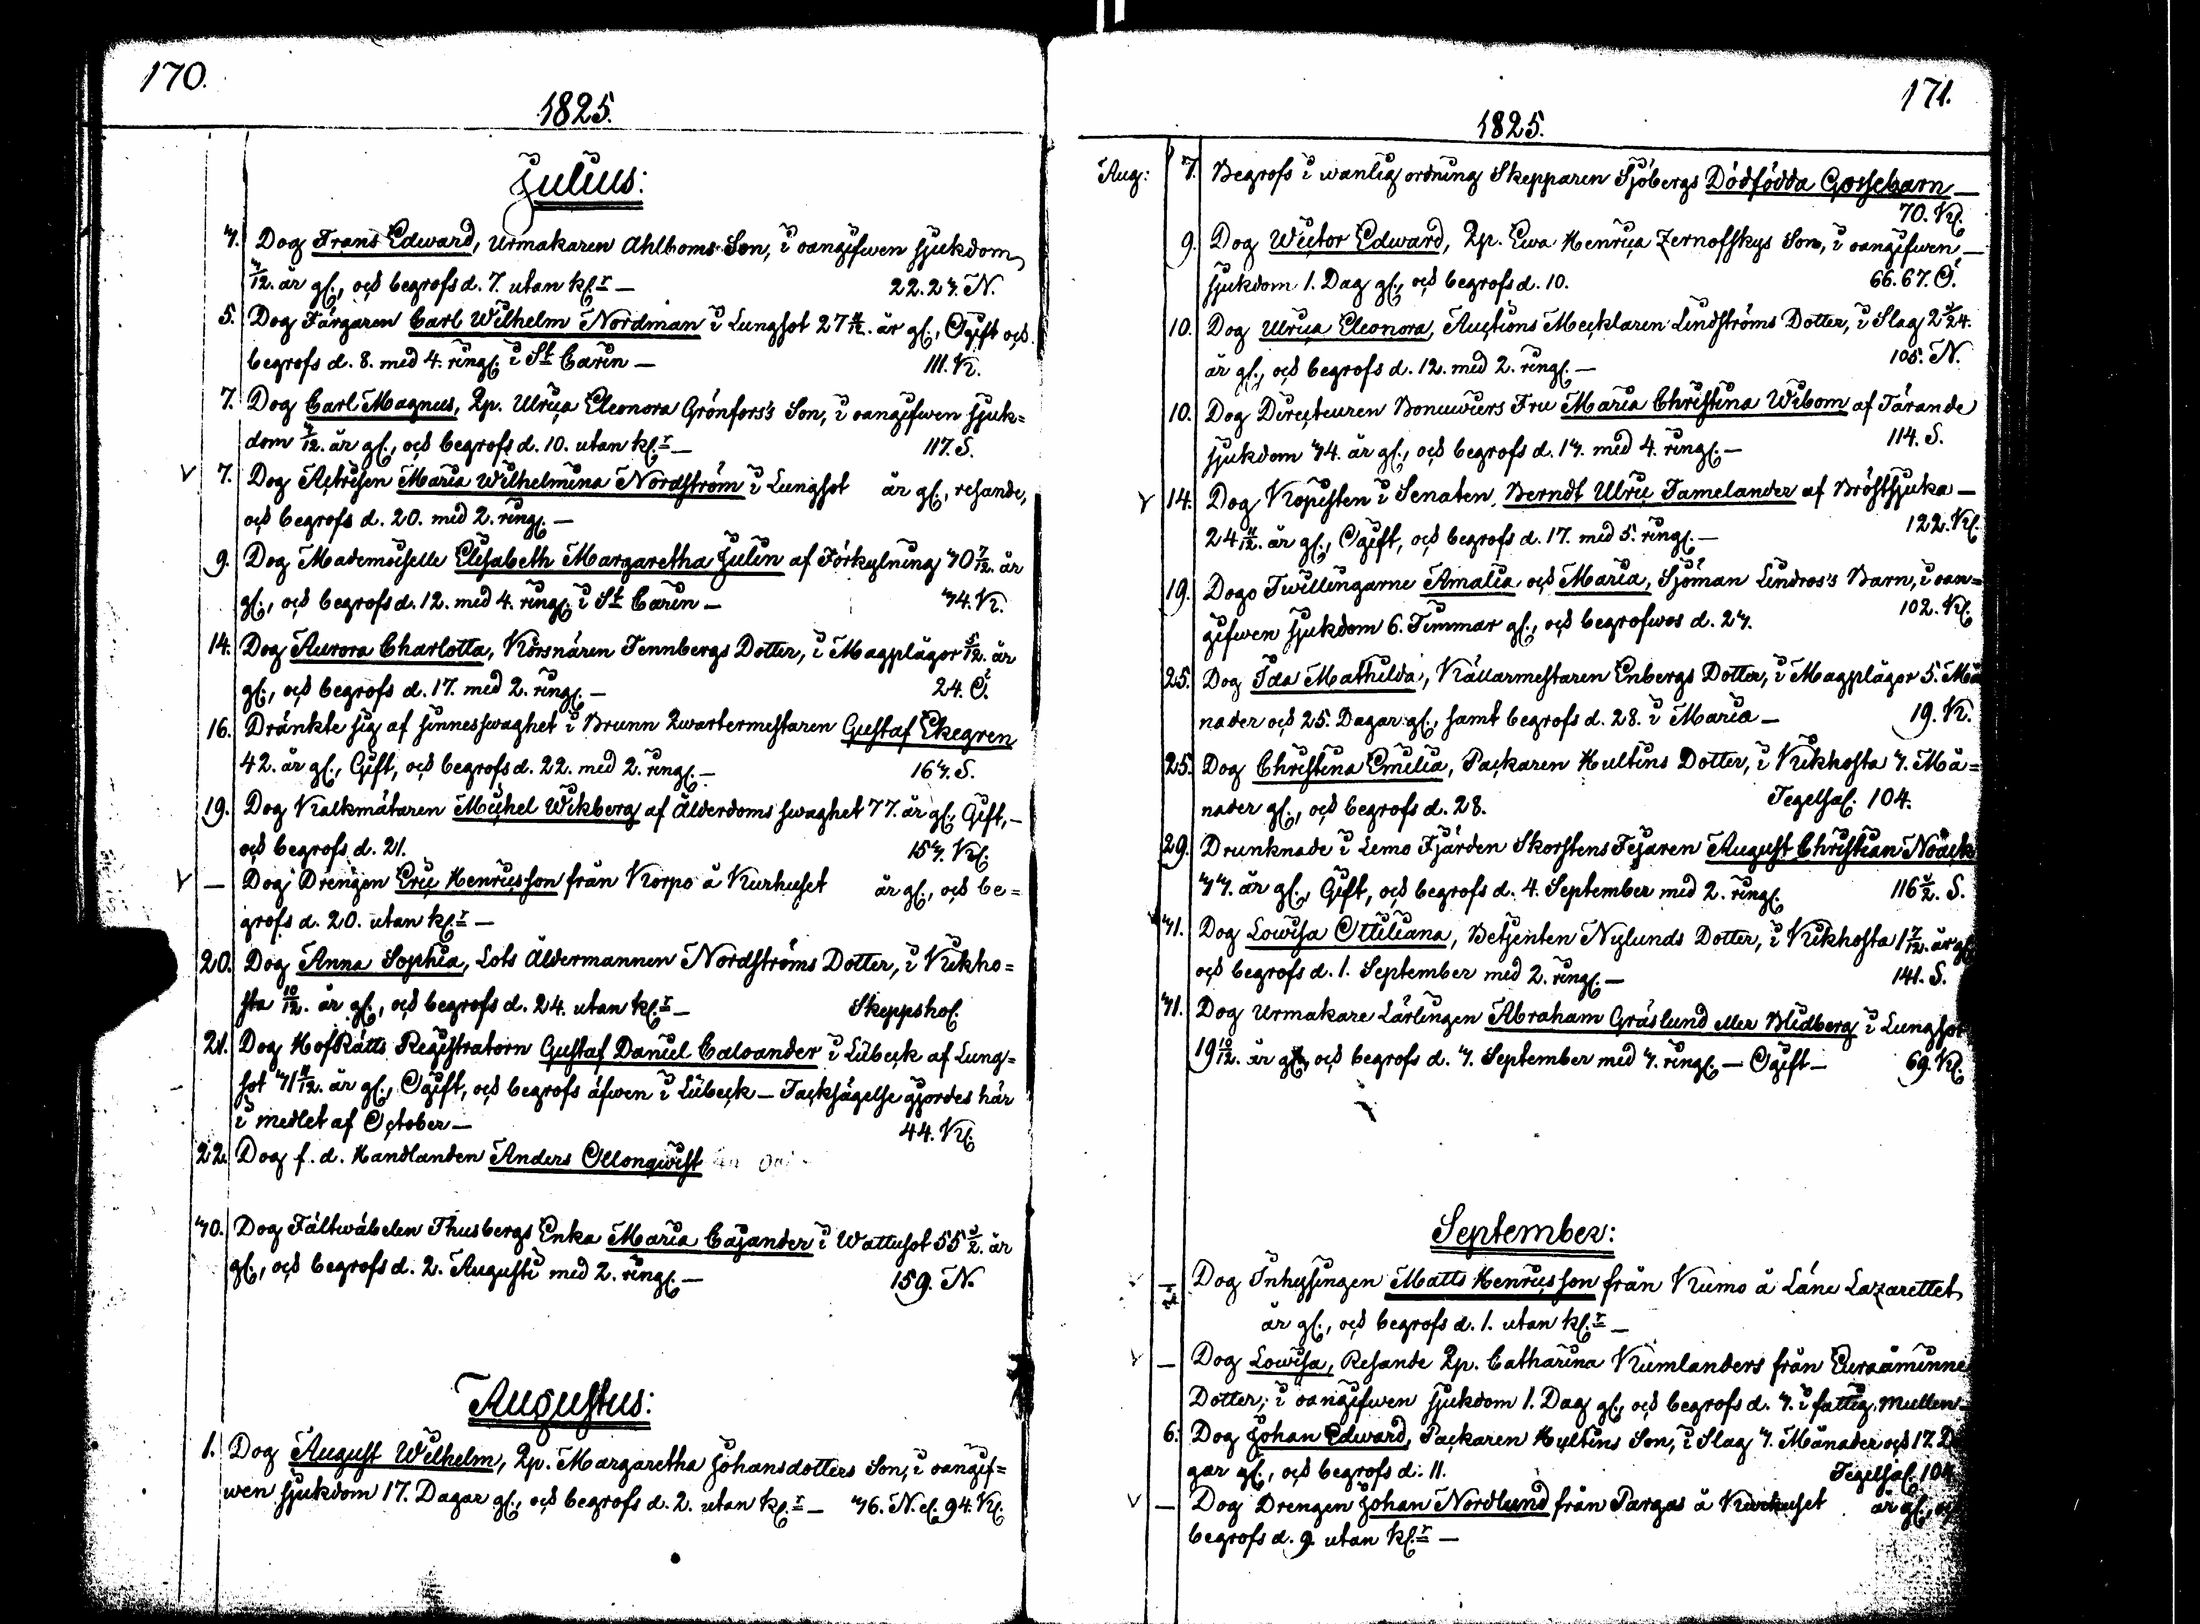 170.
1825.
Julius:
3. Dog Frans Edward, Urmakaren Ahlboms Son, i oangifwen sjukdom
3/12. år gl., och begrofs d. 7. utan kl:r — 22.23. N.
5. Dog Färgaren Carl Wilhelm Nordman i Lungsot 27 4/12. år gl., Ogift och
begrofs d. 8. med 4. ringl. i S:t Carin — 111. Kl.
7. Dog Carl Magnus, Qp. Ulrica Eleonora Grönfors's Son, i oangifwen sjuk=
dom 3/12. år gl., och begrofs d. 10. utan kl:r — 117. S.
v 7. Dog Actrisen Maria Wilhelmina Nordström i Lungsot år gl., resande,
och begrofs d. 20. med 2. ringl. —
9. Dog Mademoiselle Elisabeth Margaretha Julin af Förkylning 30 7/12. år
gl., och begrofs d. 12. med 4. ringl. i S:t Carin — 34. Kl.
14. Dog Aurora Charlotta, Körsnären Tennbergs Dotter, i Magplågor 5/12. år
gl., och begrofs d. 17. med 2. ringl. — 24. Ö.
16. Dränkte sig af sinnesswaghet i Brunn Qwartermestaren Gustaf Ekegren
42. år gl., Gift, och begrofs d. 22. med 2. ringl. — 163. S.
19. Dog Kalkmätaren Michel Wikberg af Ålderdoms swaghet 77. år gl., Gift, —
och begrofs d. 21. 153. Kl.
v — Dog Drengen Eric Henricsson från Korpo å Kurhuset år gl., och be=
grofs d. 20. utan kl:r —
20. Dog Anna Sophia, Lots Åldermannen Nordströms Dotter, i Kikho=
sta 10/12. år gl., och begrofs d. 24. utan kl:r — Skeppshol.
21. Dog HofRätts Registratorn Gustaf Daniel Caloander i Lübeck af Lung=
sot 31 4/12. år gl., Ogift, och begrofs äfwen i Lübeck — Tacksägelse gjordes här
i medlet af October — 44. Kl.
22. Dog f. d. Handlanden Anders Ollonqwist
30. Dog Fältwäbelen Thusbergs Enka Maria Cajander i Wattusot 55 1/2. år
gl., och begrofs d. 2. Augusti med 2. ringl. — 159. N.
Augustus:
1. Dog August Wilhelm, Qp. Margaretha Johansdotters Son, i oangif=
wen sjukdom 17. Dagar gl., och begrofs d. 2. utan kl:r — 36. N. el. 94. Kl.
171.
1825.
Aug: 7. Begrofs i wanlig ordning Skepparen Sjöbergs Dödfödda Gossebarn —
70. Kl.
9. Dog Wictor Edward, Qp. Ewa Henrica Zernofskys Son, i oangifwen —
sjukdom 1. Dag gl., och begrofs d. 10. 66.67. Ö.
10. Dog Ulrica Eleonora, Auctions Mecklaren Lindströms Dotter, i Slag 2 3/24.
år gl., och begrofs d. 12. med 2. ringl. — 105. N.
10. Dog Directeuren Bonuwiers Fru Maria Christina Wibom af Tärande
sjukdom 34. år gl., och begrofs d. 13. med 4. ringl. — 114. S.
v 14. Dog Kopisten i Senaten, Berndt Ulric Tamelander af Bröstsjuka —
24 4/12. år gl., Ogift, och begrofs d. 17. med 5. ringl. — 122. Kl.
19. Dogo Twillingarne Amalia och Maria, Sjöman Lindros's Barn, i oan=
gifwen sjukdom 6. Timmar gl., och begrofwos d. 23. 102. Kl.
25. Dog Ida Mathilda, Källarmestaren Enbergs Dotter, i Magplågor 5. Må
nader och 25. Dagar gl., samt begrofs d. 28. i Maria — 19. Kl.
25. Dog Christina Emilia, Packaren Hultins Dotter, i Kikhosta 3. Må=
nader gl., och begrofs d. 28. Tegelsal. 104.
29. Drunknade i Lemo Fjärden Skorstens Fejaren August Christian Noack
33. år gl., Gift, och begrofs d. 4. September med 2. ringl. 116 1/2. S.
31. Dog Lowisa Ottiliana, Betjenten Nylunds Dotter, i Kikhosta 1 7/12. år gl.
och begrofs d. 1. September med 2. ringl. — 141. S.
31. Dog Urmakare Lärlingen Abraham Gräslund eller Blidberg i Lungsot
19 10/12. år gl., och begrofs d. 3. September med 3. ringl. — Ogift — 69. Kl.
September:
v Dog Inhysingen Matts Henricsson från Kumo å Läne Lazarettet,
år gl., och begrofs d. 1. utan kl:r —
v — Dog Lowisa, Resande Qp. Catharina Kumlanders från Euraåminne
Dotter, i oangifwen sjukdom 1. Dag gl., och begrofs d. 3. i fattig. mullen —
6. Dog Johan Edward, Packaren Hyltins Son, i Slag 3. Månader och 17. D
gar gl., och begrofs d. 11. Tegelsal. 104
v — Dog Drengen Johan Nordlund från Pargas å Kurhuset år gl., oc
begrofs d. 9. utan kl:r —